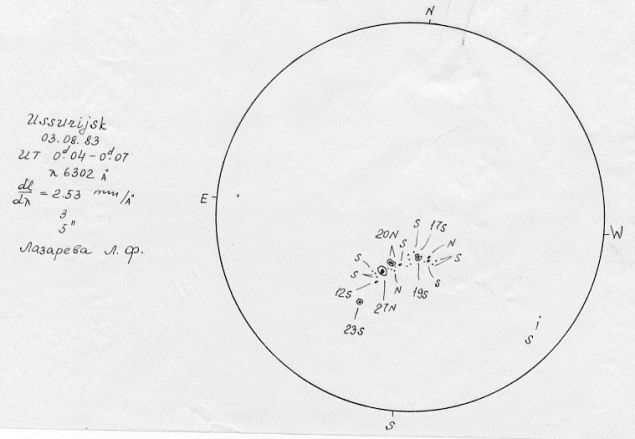 Ussurijsk
03.08.83
UT 0ᵈ.04 – 0ᵈ.07
λ 6302 Å
dl/dλ = 2.53 mm/Å
3
5"
Лазарева Л. Ф.
N
E
W
S
S 17S
20N S N
S S
S
12S N 19S S
27N
23S
S